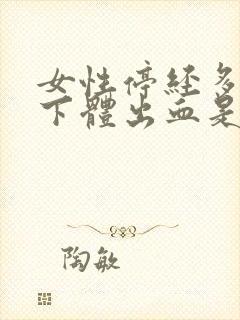 女性停经多
下體出血是
陶敏